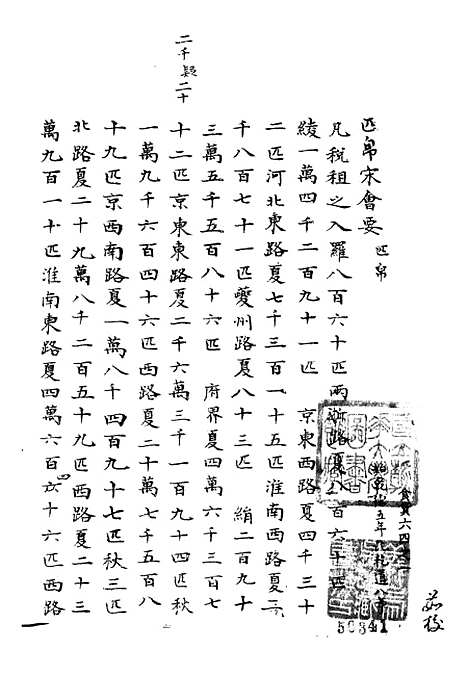 匹帛宋會要 匹帛
凡税租之入羅八百六十匹兩浙路夏八百六十匹
綾一萬四千二百九十一匹 京東西路夏四千三十
二匹河北東路夏七千三百一十五匹淮南西路夏二
千八百七十一匹夔州路夏八十三匹 絹二百九十
三萬五千五百八十六匹 府界夏四萬六千三百七
十二匹京東東路夏二十六萬三千一百九十四匹秋
一萬九千六百四十六匹西路夏二十萬七千五百八
十九匹京西南路夏一萬八千四百九十七匹秋三匹
北路夏二十九萬八千二百五十九匹西路夏二十三
萬九百一十匹淮南東路夏四萬六百六十六匹西路
二千疑二十
四
食貨六四
50341